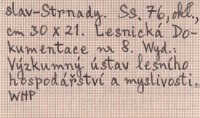 slav-Strnady. Ss. 76, obl.,
cm 30 x 21. Lesnická Do-
kumentace na 8. Wyd.:
Výzkumný ústav lesního
hospodářství a myslivosti.
WHP